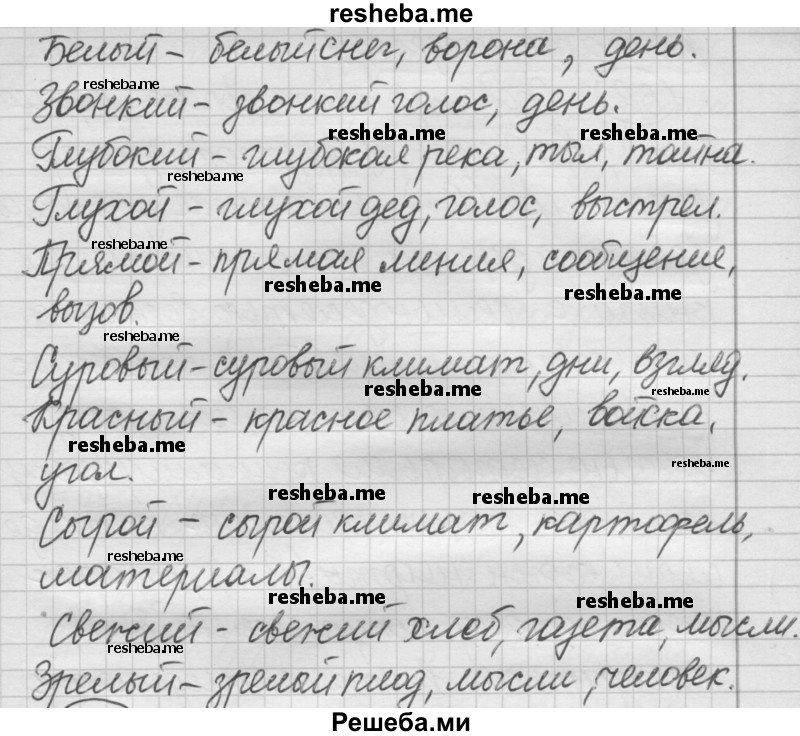 resheba.me
Белый – белый снег, ворона, день.
resheba.me
Звонкий – звонкий голос, день.
resheba.me resheba.me
Глубокий – глубокая река, тыл, тайна.
resheba.me
Глухой – глухой дед, голос, выстрел.
resheba.me
Прямой – прямая линия, сообщение,
resheba.me resheba.me
вызов.
resheba.me
Суровый – суровый климат, дни, взгляд.
resheba.me resheba.me
Красный – красное платье, войска,
resheba.me
угол.
resheba.me
resheba.me resheba.me
Сырой – сырой климат, картофель,
resheba.me
материалы.
resheba.me resheba.me
Свежий – свежий хлеб, газета, мысли.
resheba.me
Зрелый – зрелый плод, мысли, человек.
Решеба.ми